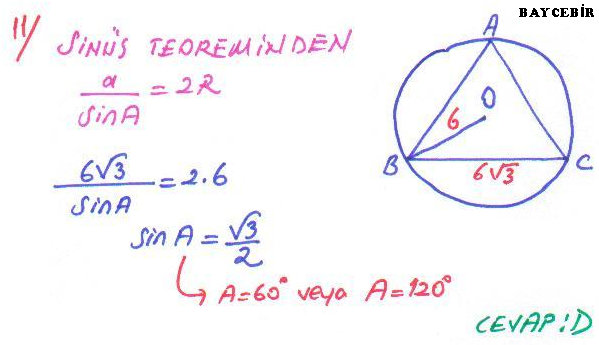 BAYCEBİR
11/ SİNÜS TEOREMİNDEN
a/SinA = 2R
6√3/SinA = 2.6
SinA = √3/2
↳ A=60° veya A=120°
A
O
6
B
6√3
C
CEVAP:D